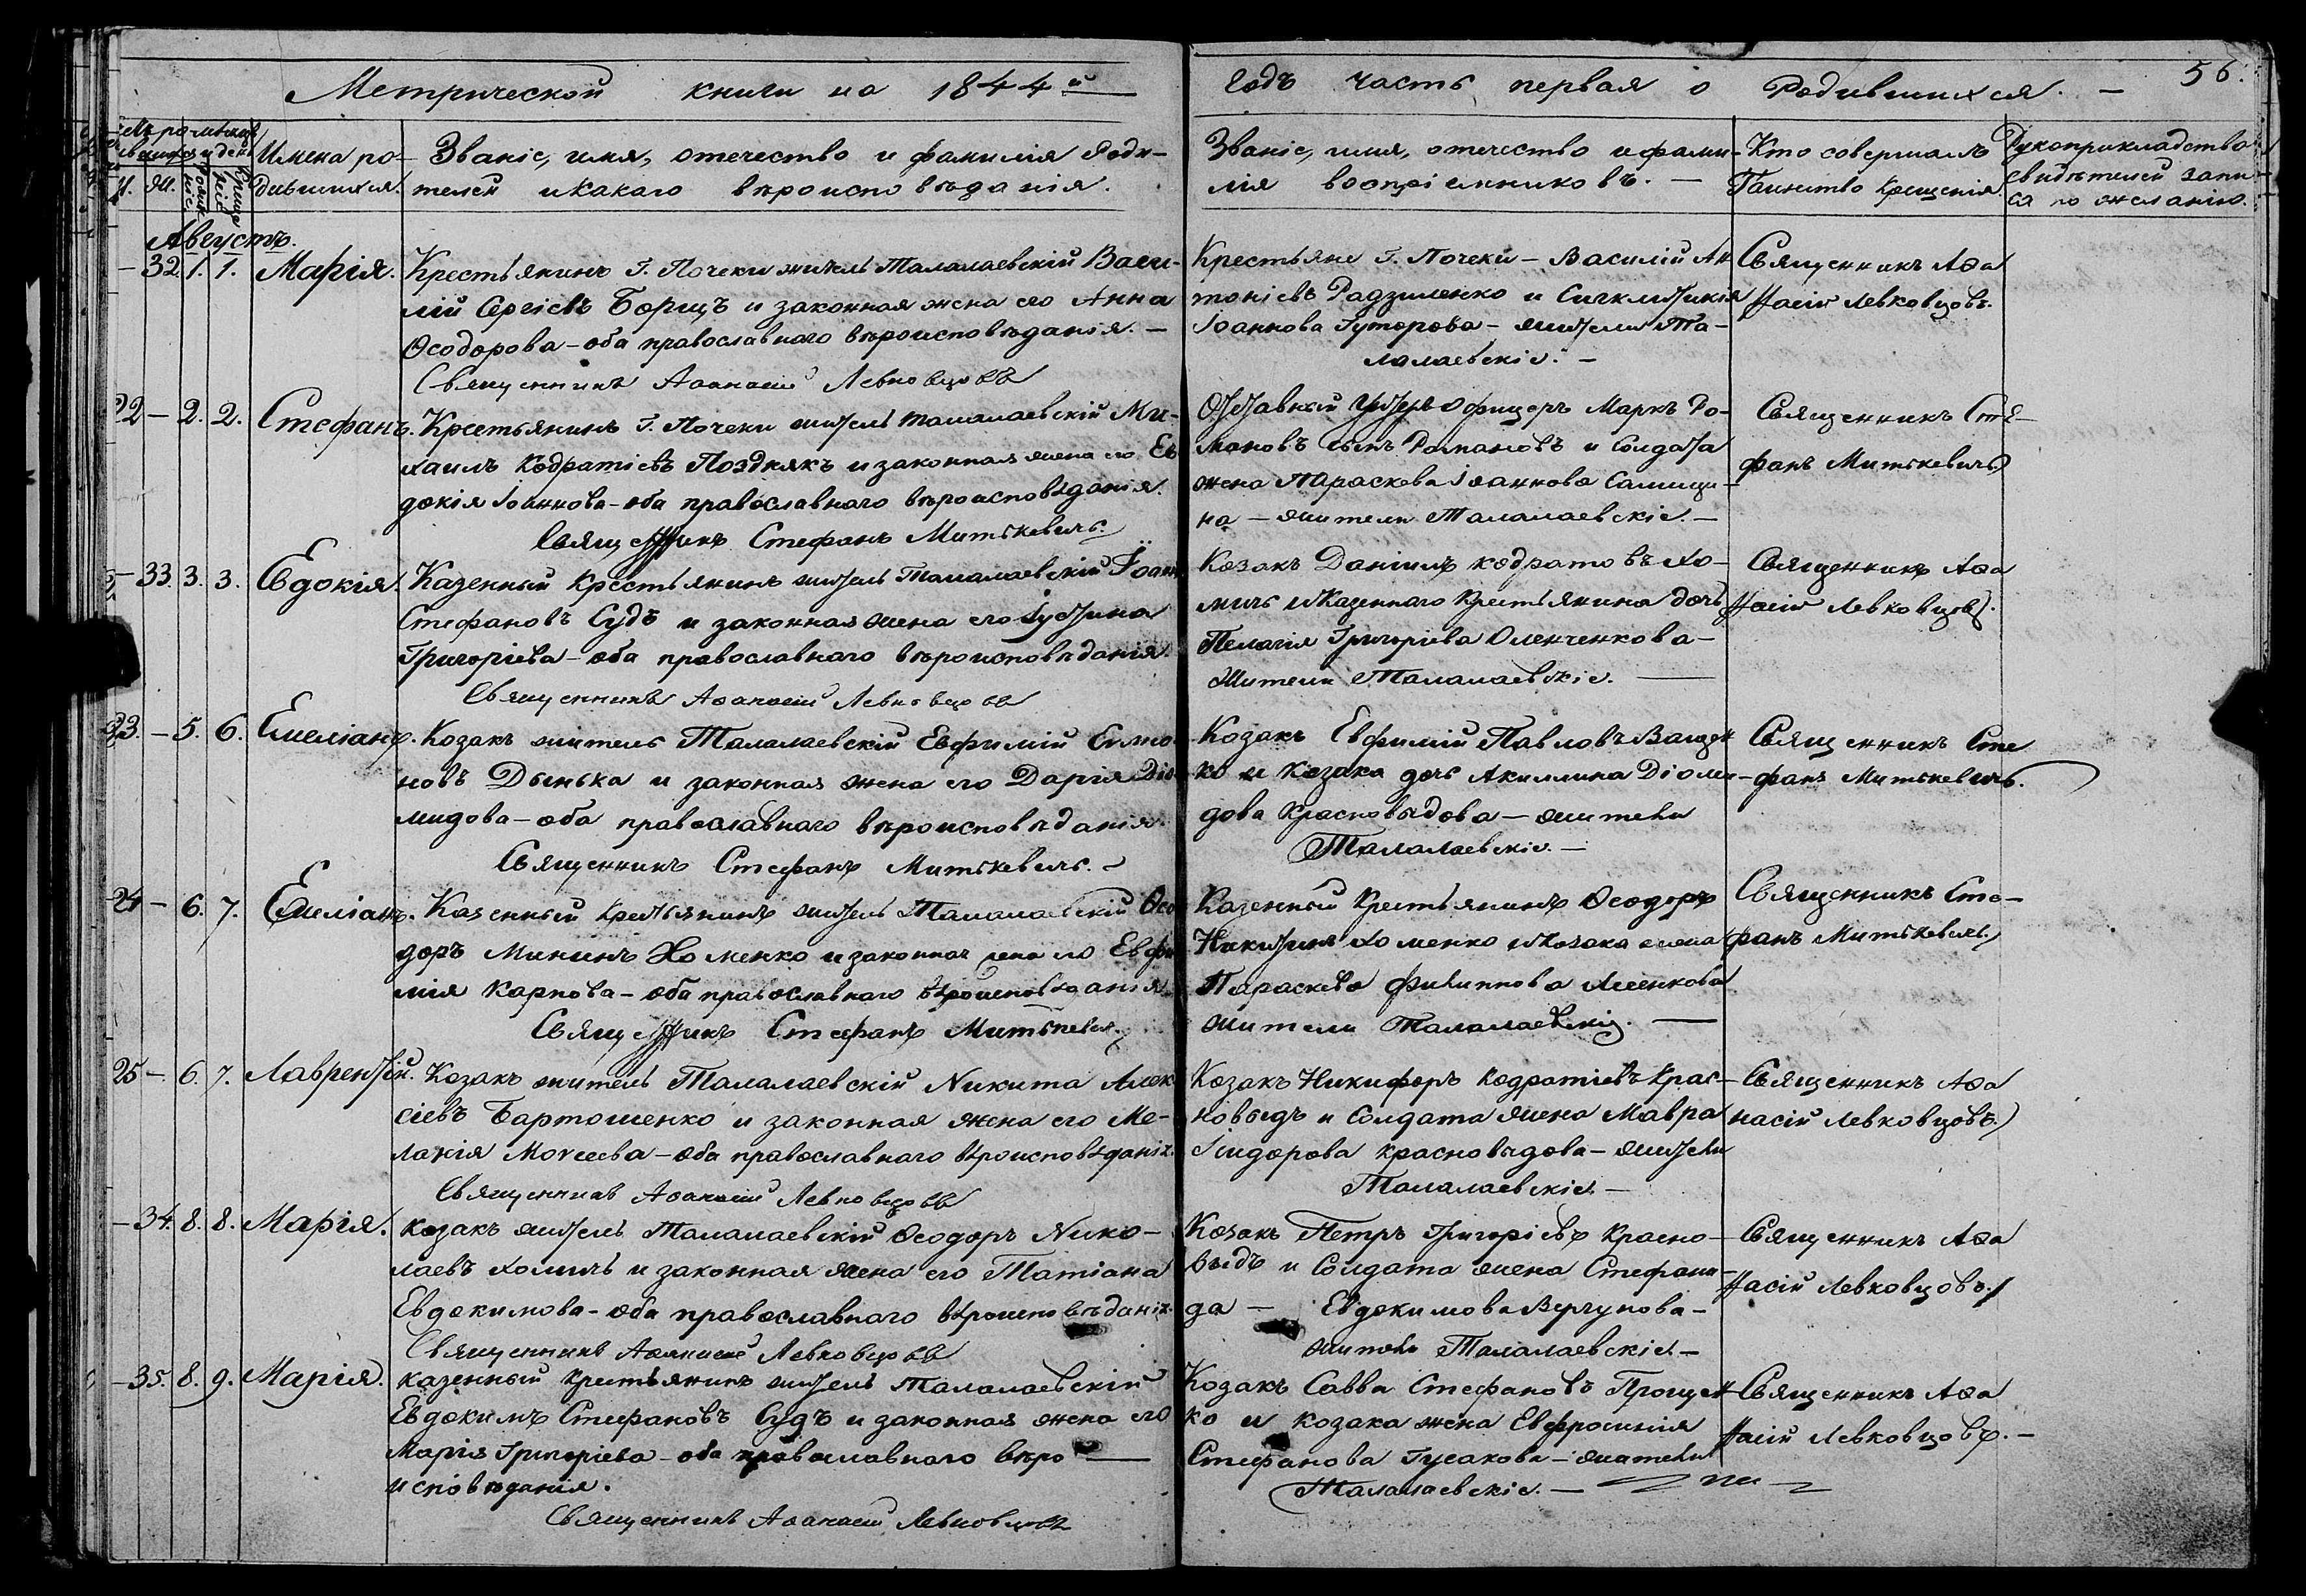 Метрической книги на 1844й
годъ часть первая о Родившихся. — 56.
Имена ро-
дившихся.
Званіе, имя, отечество и фамилія Роди-
телей и какаго вѣроисповѣданія.
Званіе, имя, отечество и фами-
лія воспріемниковъ. —
Кто совершалъ
Таинство Крещенія.
Рукоприкладство
свидѣтелей запи-
си по желанію.
Августъ.
— 32. 1. 1. Марія.
Крестьянинъ Г. Почеки житель Талалаевскій Васи-
лій Сергіевъ Борщъ и законная жена его Анна
Ѳеодорова — оба православнаго вѣроисповѣданія. —
Священникъ Аѳанасій Левковцовъ
Крестьяне Г. Почеки — Василій Ан
тоніевъ Радзиленко и
Іоаннова Гуторова — жители Та-
лалаевскіе. —
Священникъ Аѳа
насій Левковцовъ.
22 — 2. 2. Стефанъ.
Крестьянинъ Г. Почеки житель Талалаевскій Ми-
хаилъ Кодратіевъ Позднякъ и законная жена его Ев
докія Іоаннова — оба православнаго вѣроисповѣданія.
Священникъ Стефанъ Митькевичъ.
Отставный Унтеръ Офицеръ Маркъ Ро-
мановъ сынъ Романовъ и Солдата
жена Параскева Іоаннова
на — жители Талалаевскіе. —
Священникъ Сте-
фанъ Митькевичъ
33. 3. 3. Евдокія.
Казенный Крестьянинъ житель Талалаевскій Іоанъ
Стефановъ Судъ и законная жена его Іустина
Григоріева — оба православнаго вѣроисповѣданія.
Священникъ Аѳанасій Левковцовъ
Козакъ Даніилъ Кодратовъ Хо-
мичъ и Казеннаго Крестьянина дочь
Пелагія Григоріева Оленченкова —
Жители Талалаевскіе. —
Священникъ Аѳа
насій Левковцовъ.
23. — 5. 6. Емеліанъ.
Козакъ житель Талалаевскій Евфимій
новъ Дынька и законная жена его Дарія Діо
мидова — оба православнаго вѣроисповѣданія.
Священникъ Стефанъ Митькевичъ. —
Козакъ Евфимій Павловъ Ващен
ко и Козака дочь Акиллина Діоми-
дова Красновыдова — жители
Талалаевскіе. —
Священникъ Сте
фанъ Митькевичъ.
24 — 6. 7. Емеліанъ.
Казенный Крестьянинъ житель Талалаевскій Ѳео
доръ Мининъ Хоменко и законная жена его Евфи
мія Карпова — оба православнаго вѣроисповѣданія.
Священникъ Стефанъ Митькевичъ.
Казенный Крестьянинъ Ѳеодоръ
Никитинъ Хоменко и Козака жена
Параскева Филиппова
жители Талалаевскіе. —
Священникъ Сте-
фанъ Митькевичъ.
25 —. 6. 7. Лаврентій.
Козакъ житель Талалаевскій Никита Алек
сіевъ Бартошенко и законная жена его Ме-
ланія Моисеева — оба православнаго вѣроисповѣданія.
Священникъ Аѳанасій Левковцовъ
Козакъ Никифоръ Кодратіевъ Крас-
новыдъ и Солдата жена Мавра
Ісидорова Красновыдова — жители
Талалаевскіе. —
Священникъ Аѳа
насій Левковцовъ.
— 34. 8. 8. Марія.
Козакъ житель Талалаевскій Ѳеодоръ Нико-
лаевъ Хомичъ и законная жена его Татіана
Евдокимова — оба православнаго вѣроисповѣданія.
Священникъ Аѳанасій Левковцовъ
Козакъ Петръ Григоріевъ Красно-
выдъ и Солдата жена Стефани-
да — Евдокимова Вергунова —
жители Талалаевскіе. —
Священникъ Аѳа
насій Левковцовъ.
— 35. 8. 9. Марія.
Казенный Крестьянинъ житель Талалаевскій
Евдокимъ Стефановъ Судъ и законная жена его
Марія Григоріева — оба православнаго вѣро —
исповѣданія.
Священникъ Аѳанасій Левковцовъ
Козакъ Савва Стефановъ Прощен
ко и козака жена Евфросинія
Стефанова Гусакова — жители
Талалаевскіе. —
Священникъ Аѳа
насій Левковцовъ. —